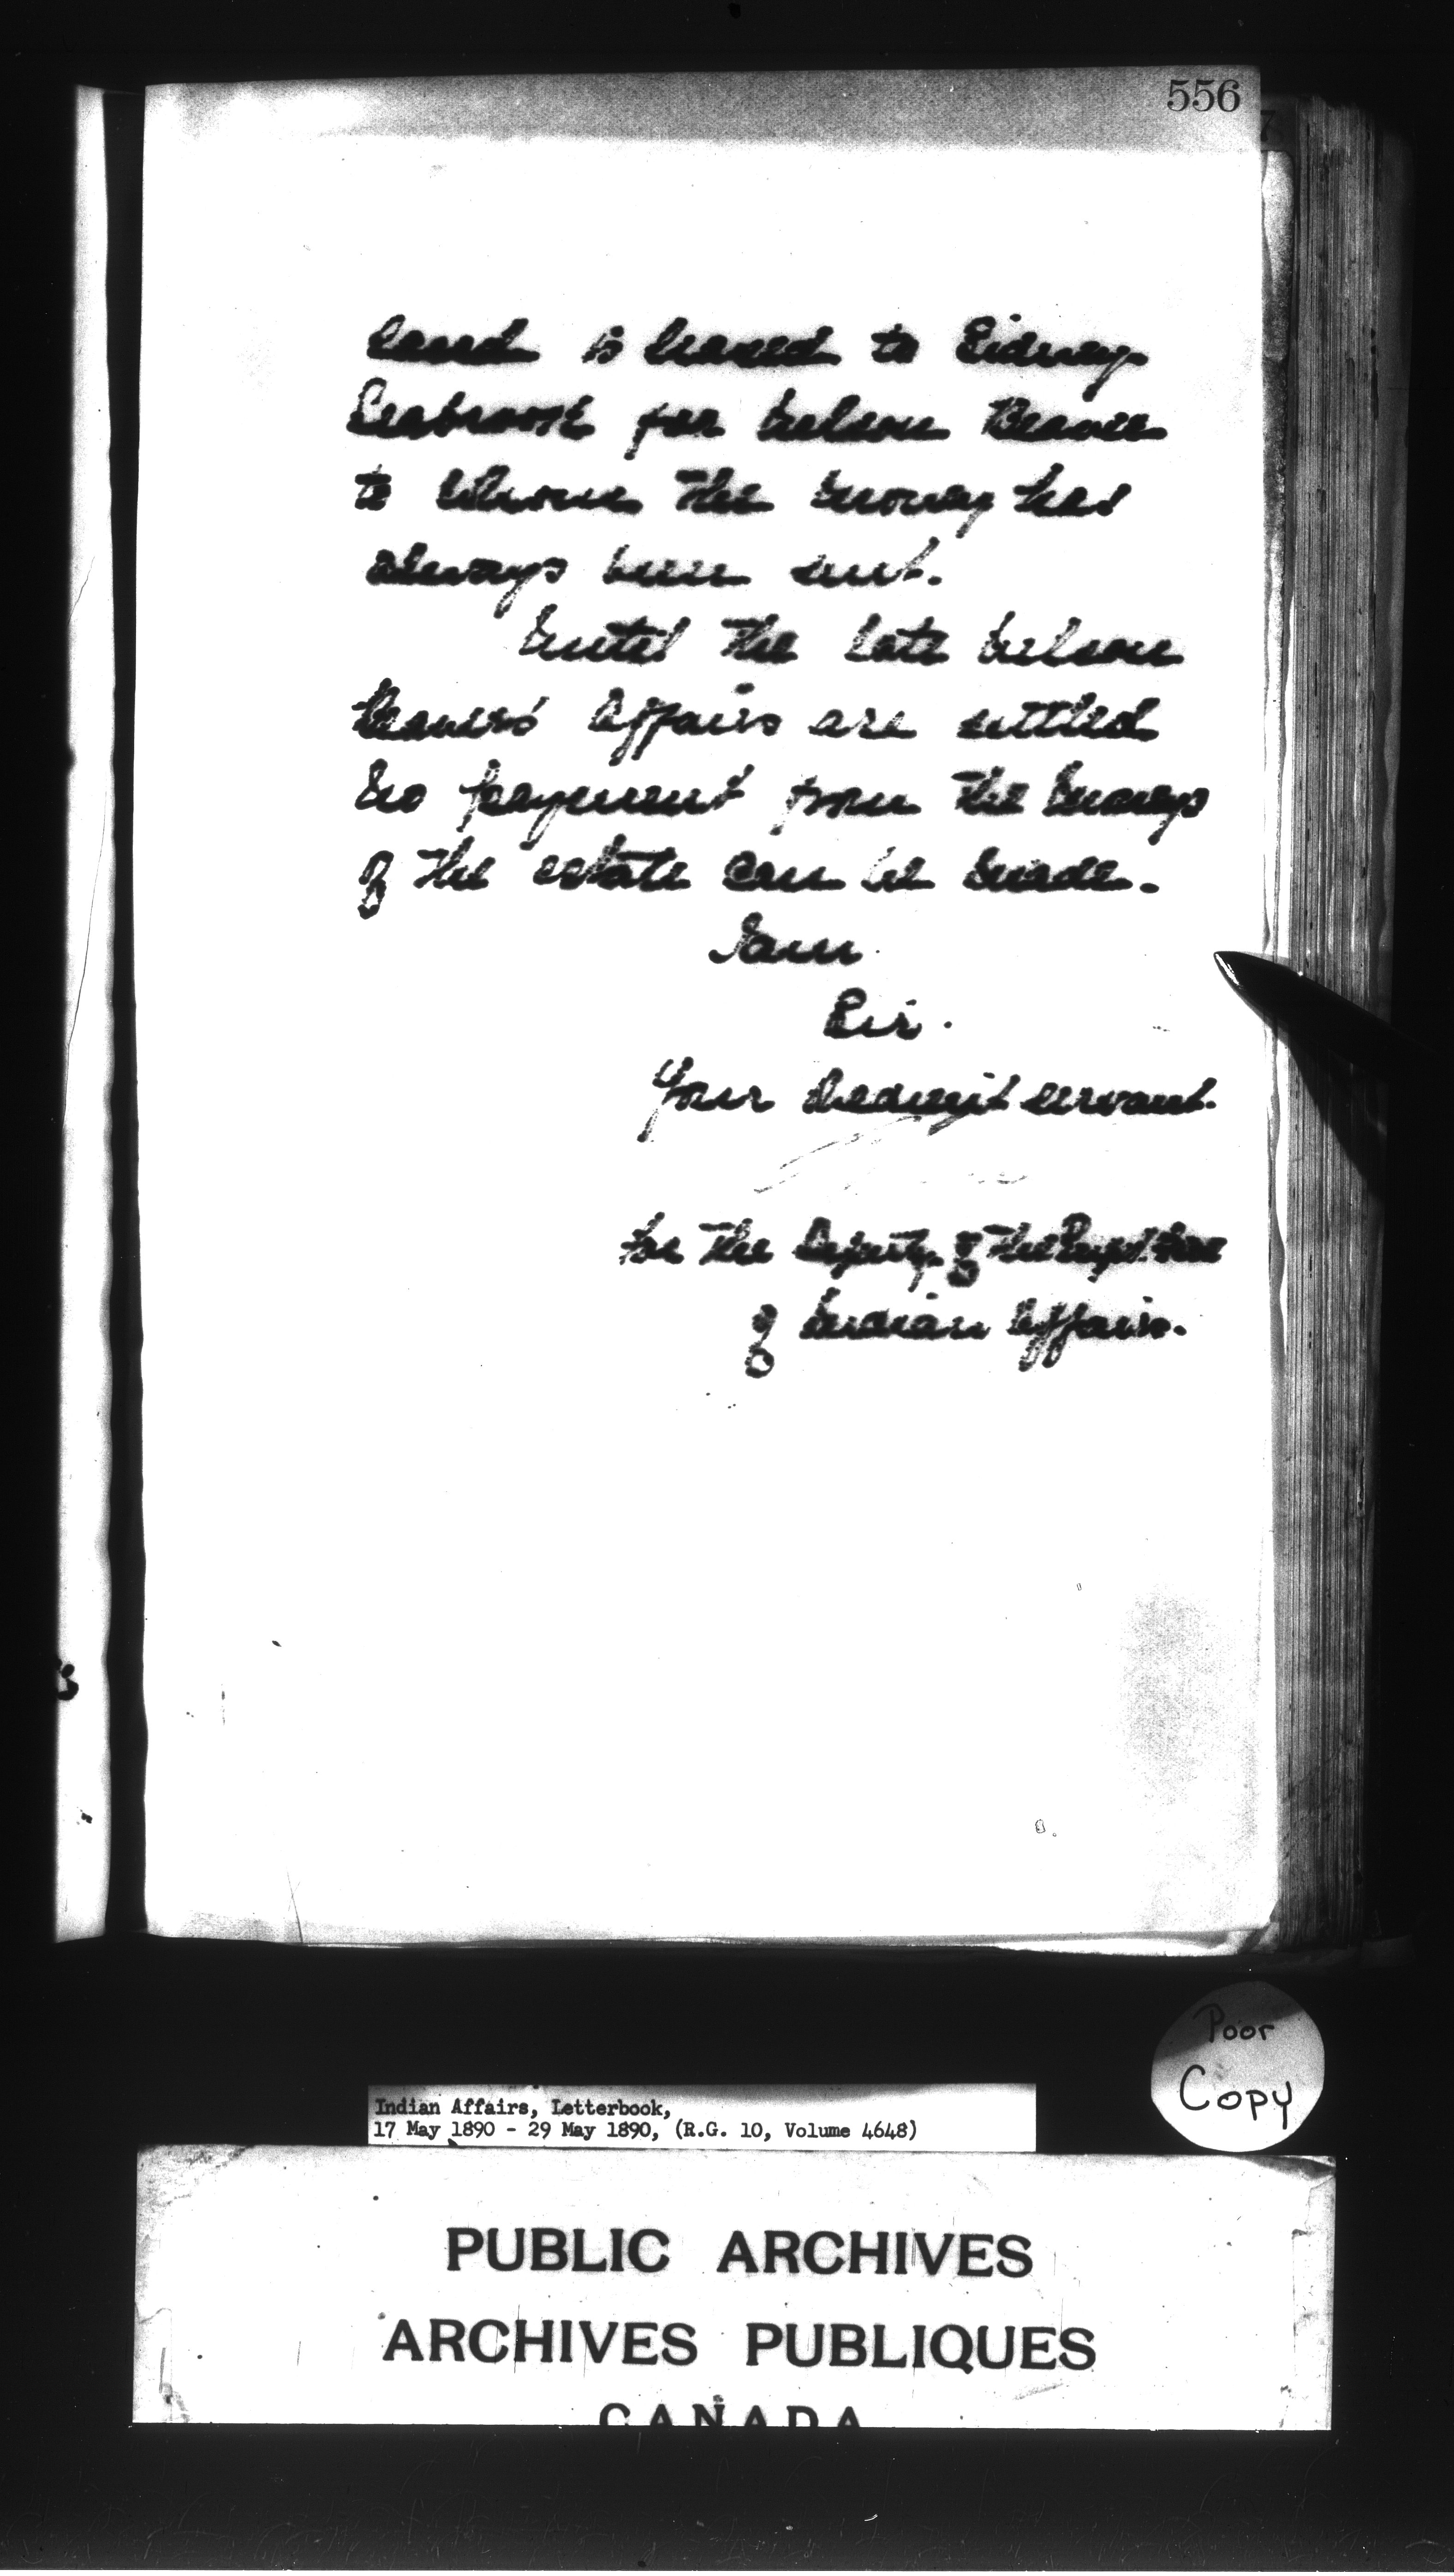 556
land is leased to Sidney
Seabrook for Nelson Beaver
to whom the money has
always been sent.
Until the late Nelson
Beavers' affairs are settled
no payment from the moneys
of the estate can be made.
I am
Sir.
Your obedient servant.
for the Deputy of the Supt. Genl
of Indian Affairs.
Poor
Copy
Indian Affairs, Letterbook,
17 May 1890 - 29 May 1890, (R.G. 10, Volume 4648)
PUBLIC ARCHIVES
ARCHIVES PUBLIQUES
CANADA